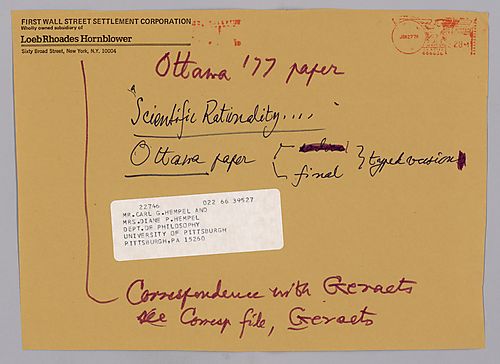 FIRST WALL STREET SETTLEMENT CORPORATION
Wholly owned subsidiary of
Loeb Rhoades Hornblower
Sixty Broad Street, New York, N.Y. 10004
Ottawa '77 paper
"Scientific Rationality...."
Ottawa paper
final } typed version
22746 022 66 39527
MR.CARL G.HEMPEL AND
MRS.DIANE P.HEMPEL
DEPT.OF PHILOSOPHY
UNIVERSITY OF PITTSBURGH
PITTSBURGH,PA 15260
Correspondence with Geraets
see Corresp file, Geraets